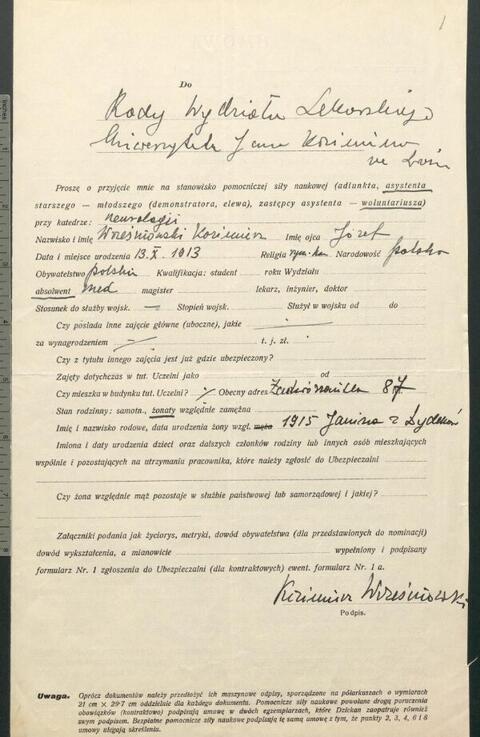 1
Do
Rady Wydziału Lekarskiego
Uniwersytetu Jana Kazimierza
we Lwowie
Proszę o przyjęcie mnie na stanowisko pomocniczej siły naukowej (adiunkta, asystenta
starszego — młodszego (demonstratora, elewa), zastępcy asystenta — woluntariusza)
przy katedrze: neurologii
Nazwisko i imię Wześniowski Kazimierz Imię ojca Józef
Data i miejsce urodzenia 13.X.1913 Religia rzym-kat Narodowość polska
Obywatelstwo polskie Kwalifikacja: student roku Wydziału
absolwent med magister lekarz, inżynier, doktor
Stosunek do służby wojsk. — Stopień wojsk. Służył w wojsku od do
Czy posiada inne zajęcie główne (uboczne), jakie
za wynagrodzeniem t. j. zł.
Czy z tytułu innego zajęcia jest już gdzie ubezpieczony?
Zajęty dotychczas w tut. Uczelni jako od
Czy mieszka w budynku tut. Uczelni? Obecny adres 87
Stan rodzinny: samotn., żonaty względnie zamężna
Imię i nazwisko rodowe, data urodzenia żony wzgl. męża 1915 Janina z
Imiona i daty urodzenia dzieci oraz dalszych członków rodziny lub innych osób mieszkających
wspólnie i pozostających na utrzymaniu pracownika, które należy zgłosić do Ubezpieczalni
Czy żona względnie mąż pozostaje w służbie państwowej lub samorządowej i jakiej?
Załączniki podania jak życiorys, metryki, dowód obywatelstwa (dla przedstawionych do nominacji)
dowód wykształcenia, a mianowicie wypełniony i podpisany
formularz Nr. 1 zgłoszenia do Ubezpieczalni (dla kontraktowych) ewent. formularz Nr. 1 a.
Kazimierz Wześniowski
Podpis.
Uwaga. Oprócz dokumentów należy przedłożyć ich maszynowe odpisy, sporządzone na półarkuszach o wymiarach
21 cm × 29·7 cm oddzielnie dla każdego dokumentu. Pomocnicze siły naukowe powołane drogą poruczenia
obowiązków (kontraktowo) podpisują umowę w dwóch egzemplarzach, które Dziekan zaopatruje również
swym podpisem. Bezpłatne pomocnicze siły naukowe podpisują tę samą umowę z tym, że punkty 2, 3, 4, 6 i 8
umowy ulegają skreśleniu.